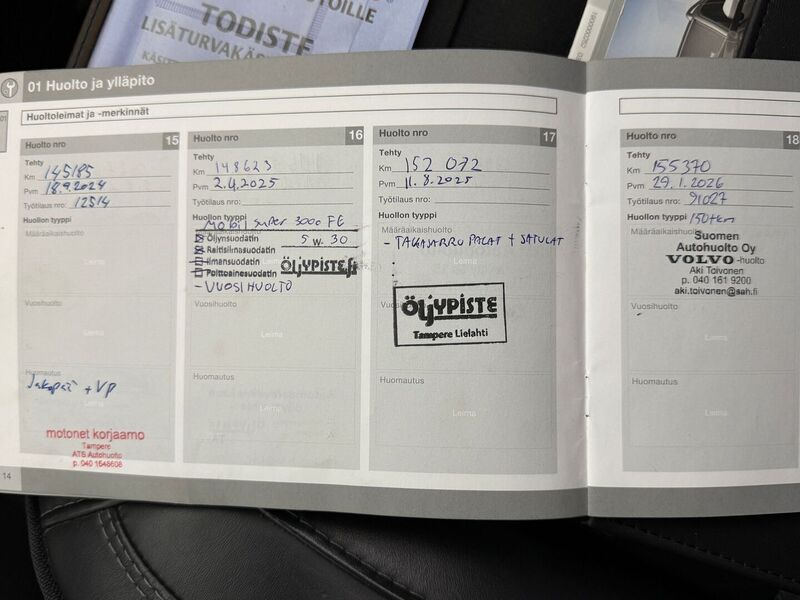 TOILLE
TODISTE
LISÄTURVAKÄS
01 Huolto ja ylläpito
01
Huoltoleimat ja -merkinnät
Huolto nro 15
Tehty
Km 145185
Pvm 18.9.2024
Työtilaus nro: 12514
Huollon tyyppi
Määräaikaishuolto
Leima
Vuosihuolto
Leima
Huomautus
Jakopää + VP
motonet korjaamo
Tampere
ATS Autohuolto
p. 040 1646608
14
Huolto nro 16
Tehty
Km 148623
Pvm 2.4.2025
Työtilaus nro:
Huollon tyyppi
Mobil Super 3000 FE
Öljynsuodatin 5 W. 30
Raitisilmasuodatin
Ilmansuodatin
Polttoainesuodatin
ÖLJYPISTE.fi
- VUOSIHUOLTO
Vuosihuolto
Leima
Huomautus
Leima
Huolto nro 17
Tehty
Km 152 072
Pvm 11.8.2025
Työtilaus nro:
Huollon tyyppi
Määräaikaishuolto
- TAKAJARRU PALAT + SATULAT
Leima
ÖLJYPISTE
Tampere Lielahti
Huomautus
Leima
Huolto nro 18
Tehty
Km 155370
Pvm 29.1.2026
Työtilaus nro: 91027
Huollon tyyppi 150tkm
Määräaikaishuolto
Suomen
Autohuolto Oy
VOLVO-huolto
Aki Toivonen
p. 040 161 9200
aki.toivonen@sah.fi
Vuosihuolto
Leima
Huomautus
Leima